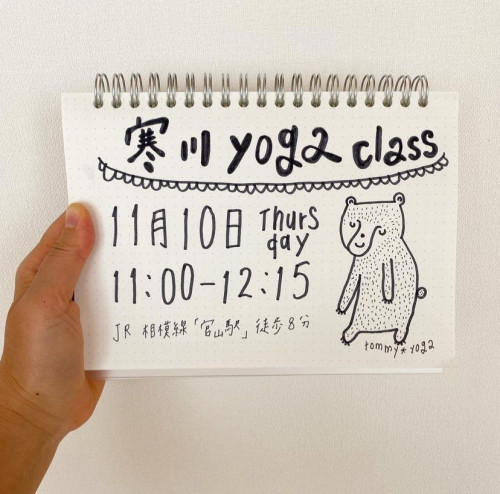 寒川 yoga class
11月10日 Thursday
11:00-12:15
JR 相模線「宮山駅」徒歩8分
tommy*yoga